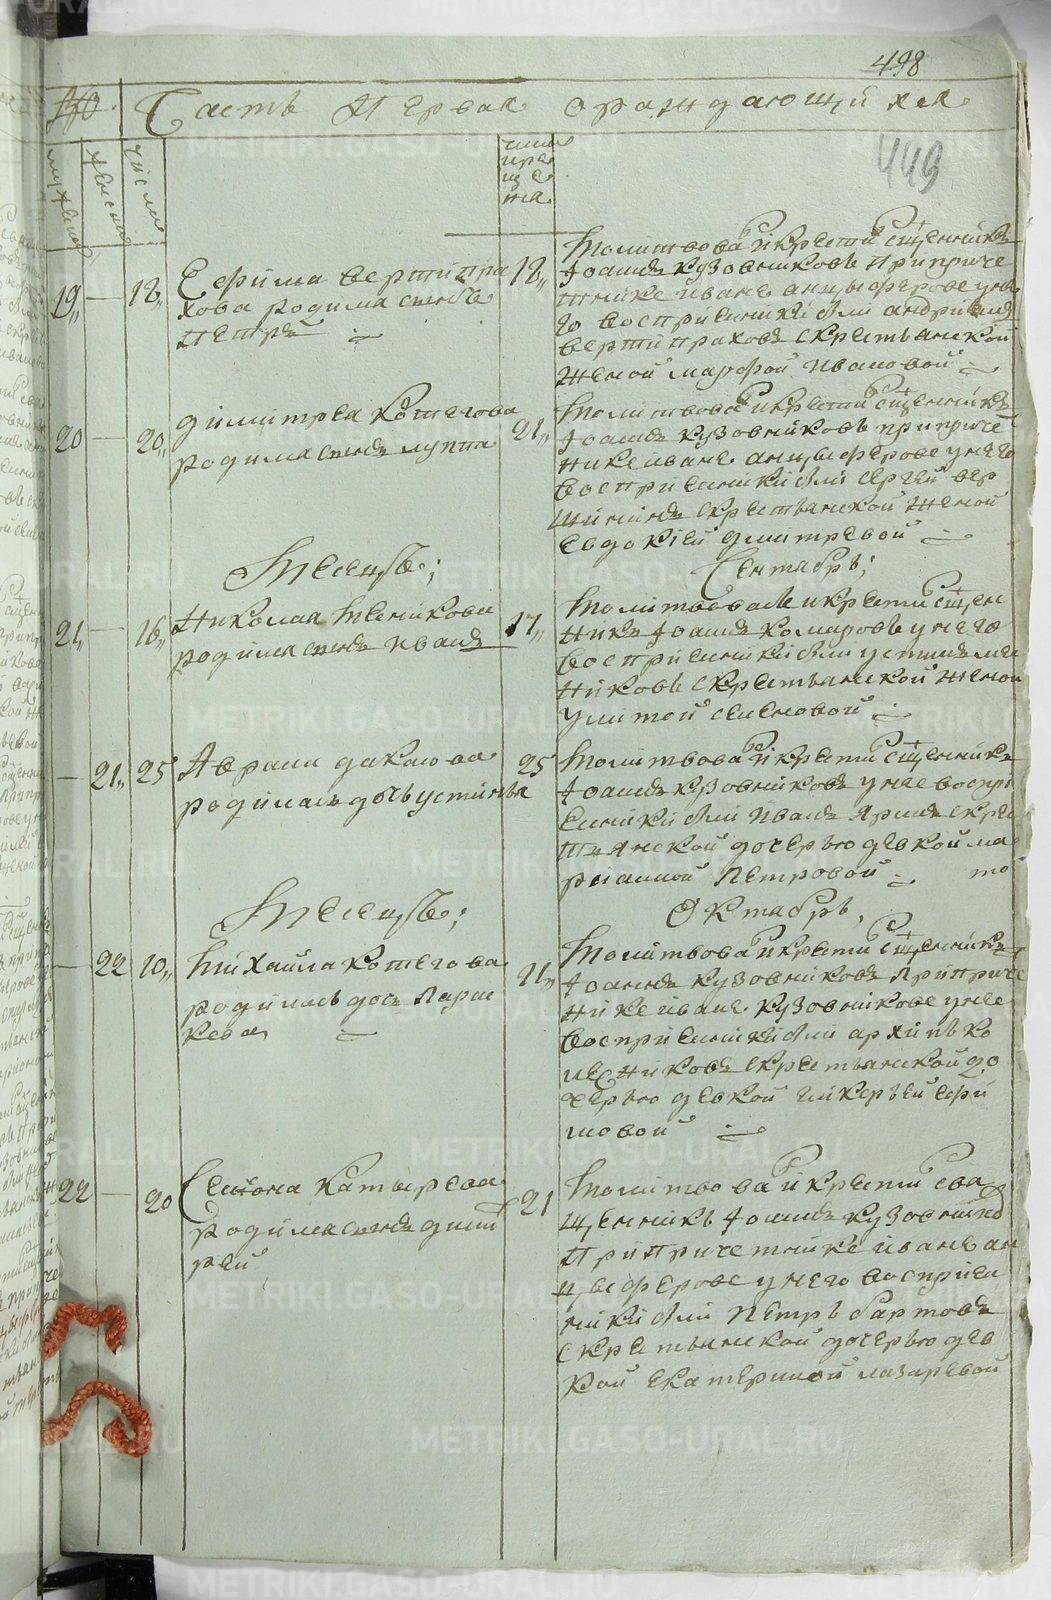 498
449
Часть Первая о раждающихся
мужеска
женска
числа
19
18
Ефима вертипра
хова родился сынъ
Петръ
18
молитвовалъ и крестилъ Сщенникъ
Іоаннъ кузовниковъ При приче
тнике иване анцыферове у не
го восприемники были андрей
вертипраховъ скрестьянской
женой марфой ивановой
20
20
димитрея котегова
родился сынъ луппа
21
молитвовалъ и крестилъ Сщенникъ
Іоаннъ кузовниковъ при приче
тнике иване анцыферове у него
восприемники были сергей вер
шининъ скрестьянской женой
евдокіей дмитревой
Месецъ;
Сентябрь;
21
16
Николая мѣникова
родился сынъ иванъ
17
молитвовалъ и крестилъ Сщен
никъ Іоаннъ комаровъ у него
восприемники были устинъ ме
никовъ скрестьянской женой
улитой семеновой
21
25
Аврама дакаюва
родилась дочь устинья
25
молитвовалъ и крестилъ Сщенникъ
Іоаннъ кузовниковъ у нее воспри
емники были иванъ скре
стьянской дочерью девкой ма
Петровой
Месецъ;
Октябрь,
22
10
михайла котегова
родилась дочь Парас
кева
11
молитвовалъ и крестилъ Сщенникъ
Іоаннъ кузовниковъ При приче
тнике иване кузовникове у нее
восприемники были архипъ ко
никовъ скрестьянской до
черью девкой гликерьей ефи
мовой
22
20
Семона катырева
родился сынъ дмит
рей
21
молитвовалъ и крестилъ Сва
щенникъ Іоаннъ кузовников
При причетнике иване ан
цыферове у него восприем
ники были Петръ бартовъ
скрестьянской дочерью дев
кой екатериной лазаревой
METRIKI.GASO-URAL.RU